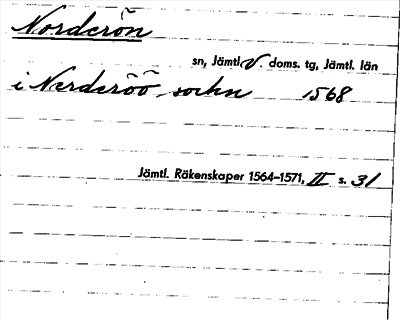 Norderön
sn, Jämtl V. doms. tg, Jämtl. län
i Nerderöö sockn 1568
Jämtl. Räkenskaper 1564-1571, II s. 31